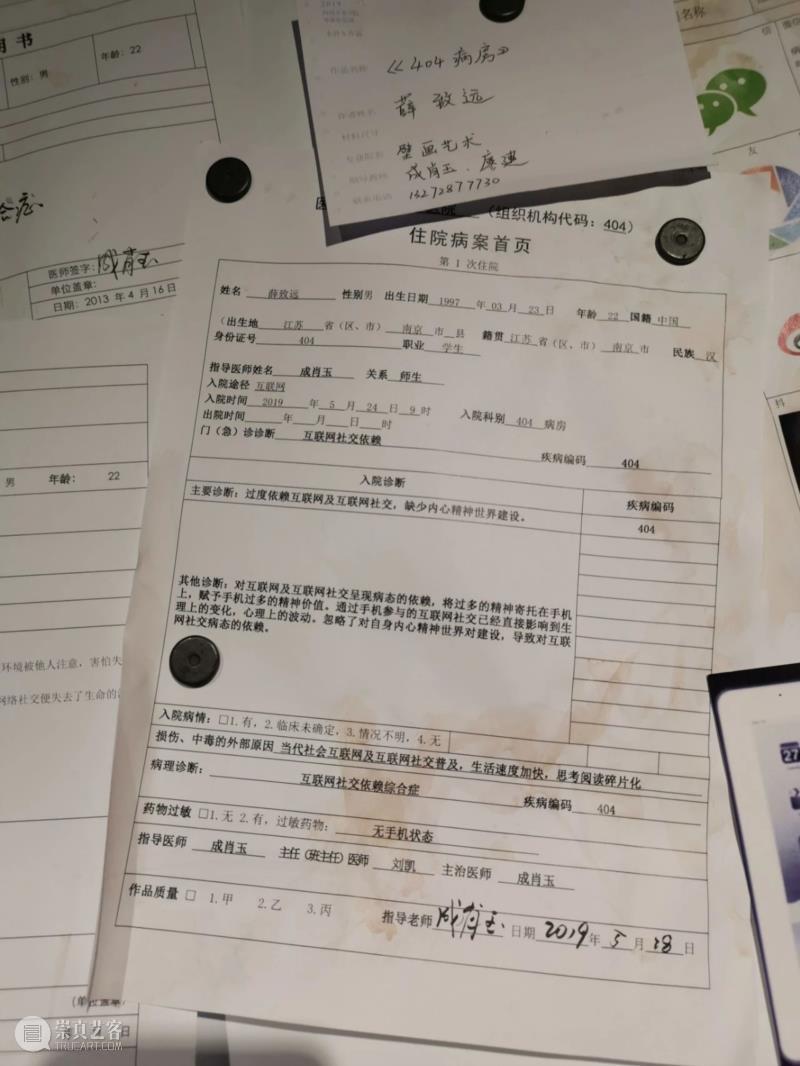 用书
性别：男
年龄：22
名称
2019
作品名称
《404 病房》
薛致远
壁画艺术
成肖玉、廖建
13272877730
友
合症
医师签字：成肖玉
单位盖章：
日期：2013 年 4 月 16 日
（组织机构代码：404）
住院病案首页
第 1 次住院
姓名 薛致远 性别男 出生日期 1997 年 03 月 23 日 年龄 22 国籍 中国
（出生地 江苏 省（区、市） 南京 市 县 籍贯 江苏 省（区、市） 南京 市 民族 汉
身份证号 404 职业 学生
指导医师姓名 成肖玉 关系 师生
入院途径 互联网
入院时间 2019 年 5 月 24 日 9 时 入院科别 404 病房
出院时间 年 月 日 时
门（急）诊诊断 互联网社交依赖 疾病编码 404
入院诊断 疾病编码
主要诊断：过度依赖互联网及互联网社交，缺少内心精神世界建设。 404
其他诊断：对互联网及互联网社交呈现病态的依赖，将过多的精神寄托在手机
上，赋予手机过多的精神价值。通过手机参与的互联网社交已经直接影响到生
理上的变化，心理上的波动。忽略了对自身内心精神世界对建设，导致对互联
网社交病态的依赖。
入院病情：□1.有，2.临床未确定，3.情况不明，4.无
损伤、中毒的外部原因 当代社会互联网及互联网社交普及，生活速度加快，思考阅读碎片化
病理诊断： 互联网社交依赖综合症 疾病编码 404
药物过敏 □1.无 2.有，过敏药物： 无手机状态
指导医师 成肖玉 主任（班主任）医师 刘凯 主治医师 成肖玉
作品质量 □ 1.甲 2.乙 3.丙
指导老师 成肖玉 日期 2019 年 5 月 18 日
男 年龄： 22
环境被他人注意，害怕失
网络社交便失去了生命的
（单位盖章）
日
科
27
崇真艺客
TRUEART.COM